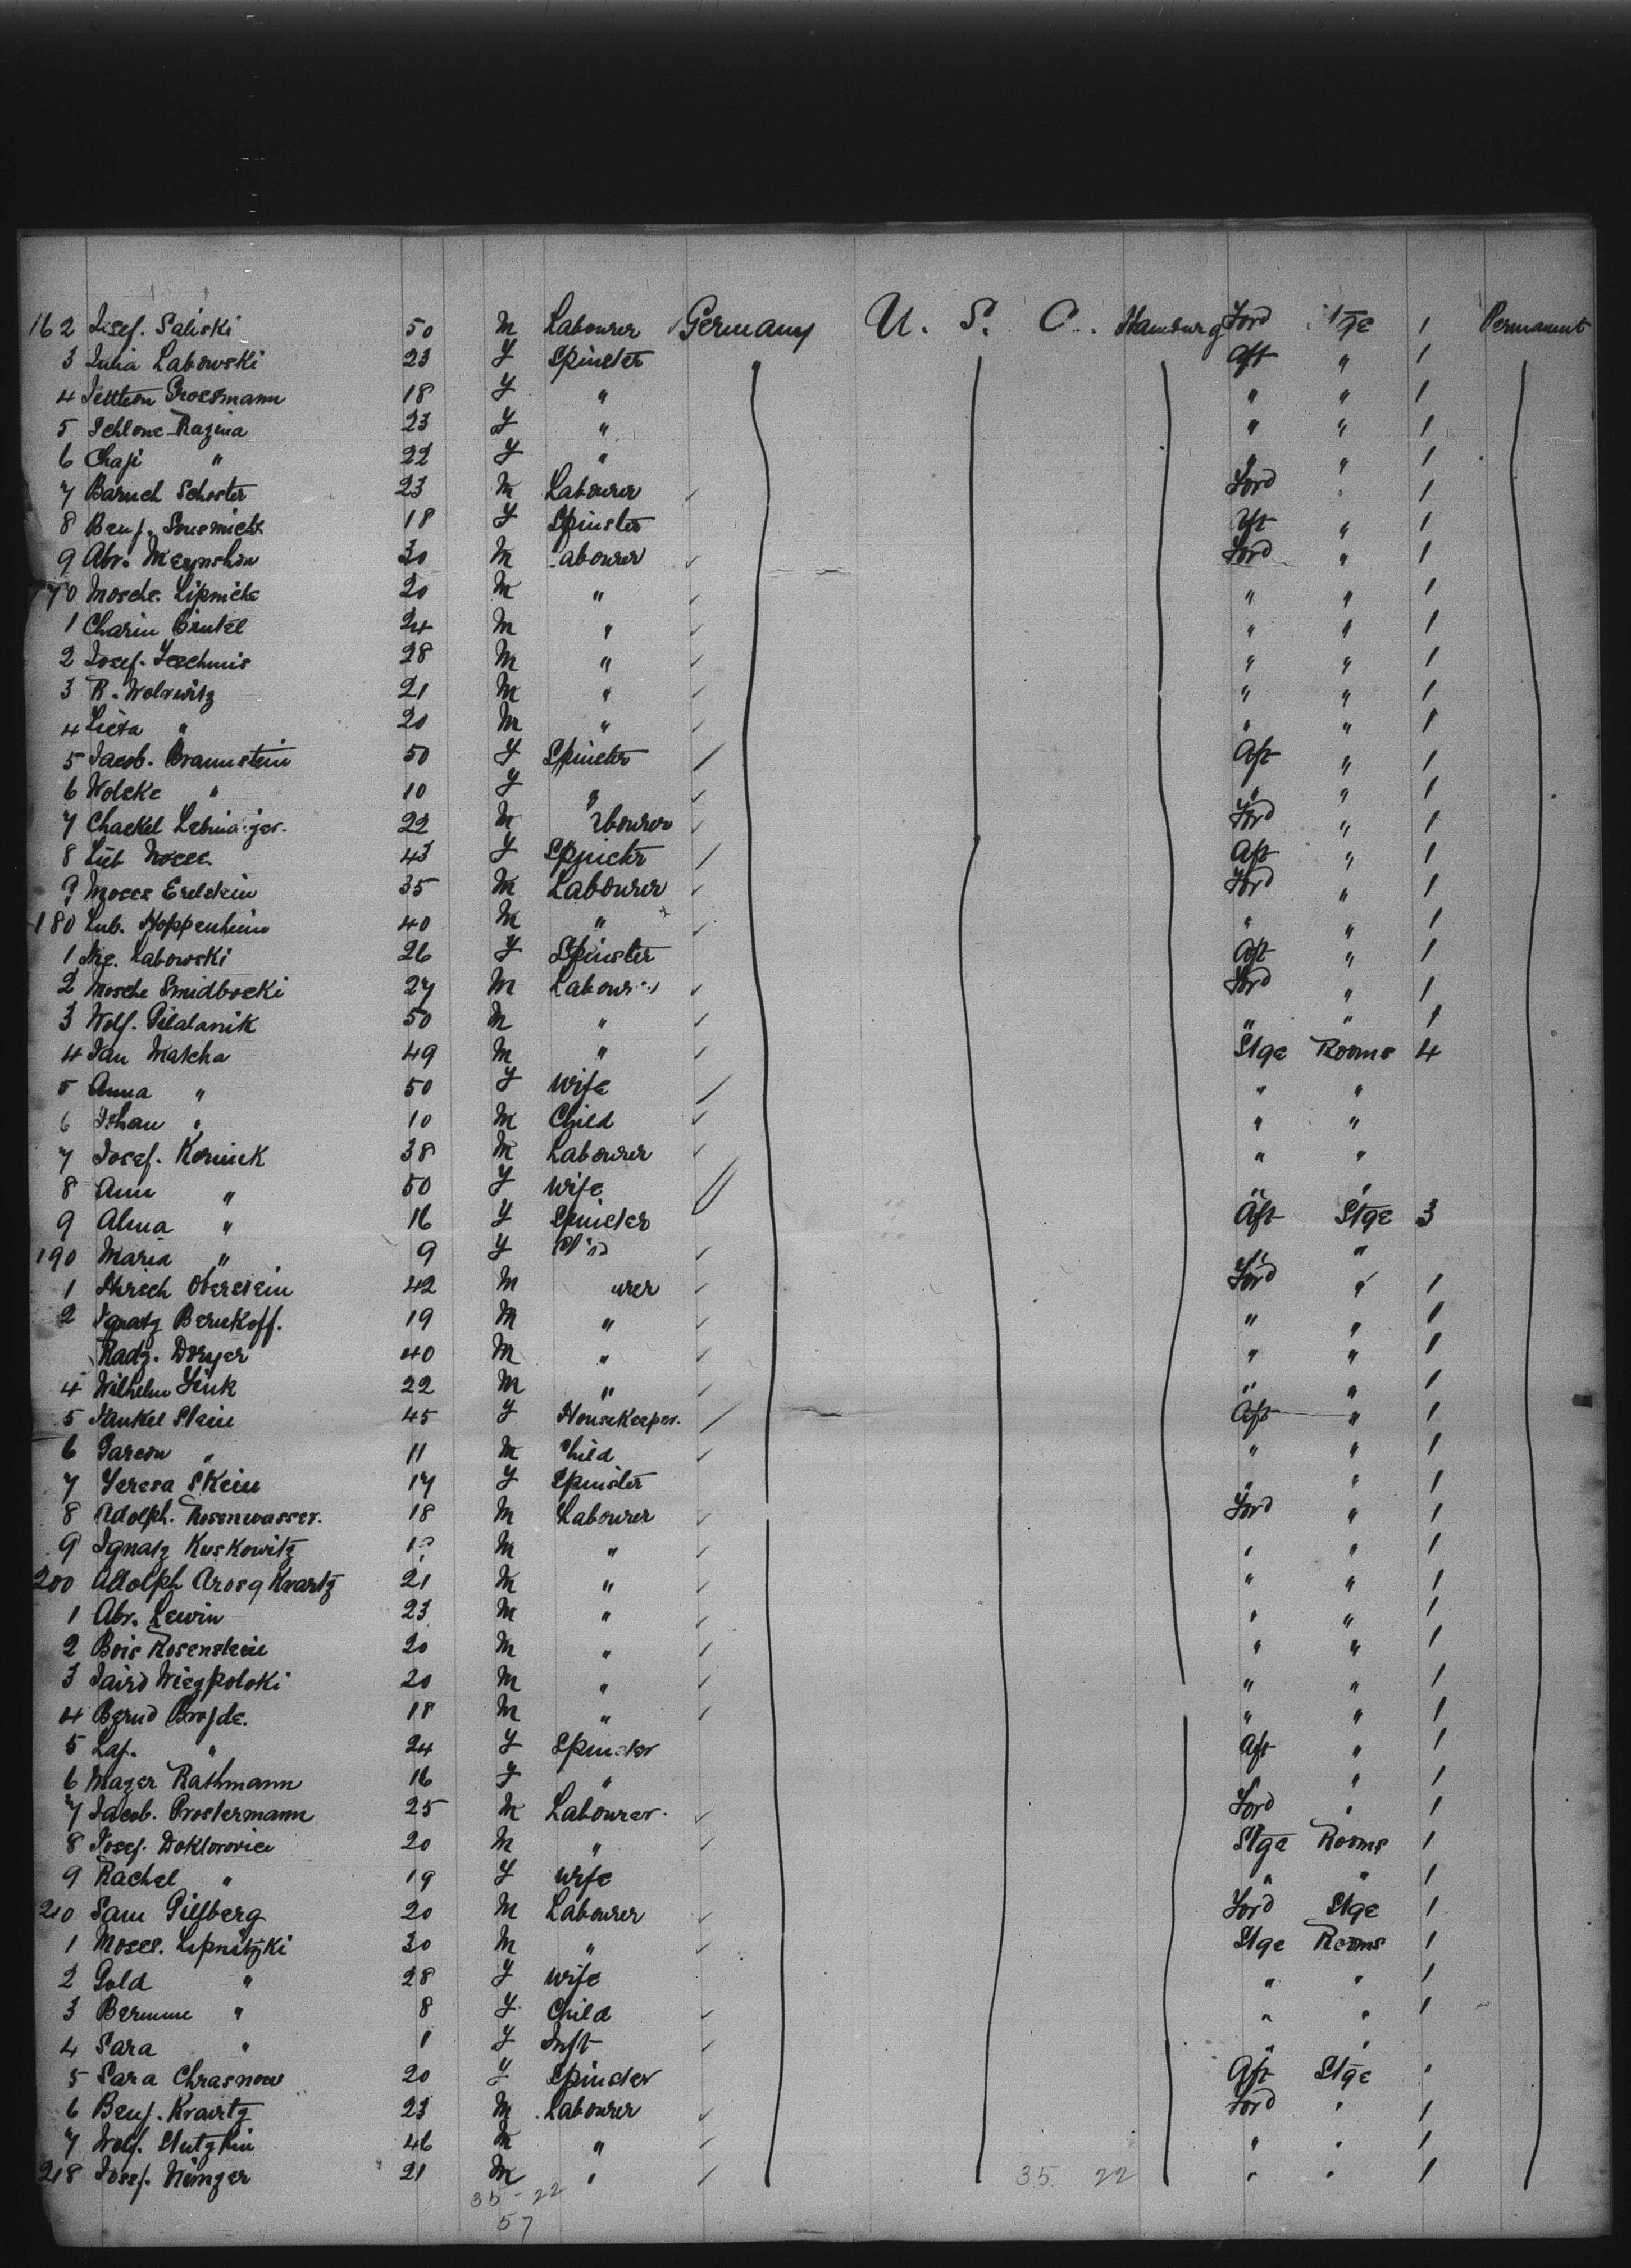 162 Josef. Saliski 50 M Labourer Germany U. S. C. Hamburg Ford Stge 1 Permanent
3 Julia Labowski 23 F Spinster Aft " 1
4 Grossmann 18 F " " " 1
5 Schlome Razina 23 F " " " 1
6 Chaji " 22 F " " " 1
7 Baruch Schoster 23 M Labourer Ford " 1
8 Benj. 18 F Spinster Aft " 1
9 Abr. 30 M Labourer Ford " 1
170 Mosche. Lipnicke 20 M " " " 1
1 Charin 24 M " " " 1
2 Josef. 28 M " " " 1
3 R. Wolrwitz 21 M " " " 1
4 " 20 M " " " 1
5 Jacob. Braunstein 50 F Spinster Aft " 1
6 Woleke " 10 F " " " 1
7 Chackel 22 M abourer Ford " 1
8 Lieb Moses. 43 F Spinster Aft " 1
9 Moses Erelstein 35 M Labourer Ford " 1
180 Lub. Hoppenheim 40 M " " " 1
1 Labowski 26 F Spinster Aft " 1
2 Mosche Smidbocki 27 M Labourer Ford " 1
3 Wolf. 50 M " " " 1
4 Jan Matcha 49 M " Stge Rooms 4
5 Anna " 50 F Wife " "
6 Johan " 10 M Child " "
7 Josef. Kornick 38 M Labourer " "
8 Ann " 50 F Wife " "
9 Alma " 16 F Spinster Aft Stge 3
190 Maria " 9 F " "
1 Hirsch Oberstein 42 M urer Ford " 1
2 Ignatz Berukoff. 19 M " " " 1
Radz. Doryer 40 M " " " 1
4 Wilhelm Fink 22 M " " " 1
5 Jankel Stein 45 F Housekeeper. Aft " 1
6 " 11 M Child " " 1
7 Teresa Skein 17 F Spinster " " 1
8 Adolph. Rosenwasser. 18 M Labourer Ford " 1
9 Ignatz Kuskowitz M " " " 1
200 Adolph 21 M " " " 1
1 Abr. Lewin 23 M " " " 1
2 Bois Rosenstein 20 M " " " 1
3 20 M " " " 1
4 Brojde. 18 M " " " 1
5 " 24 F Spinster Aft " 1
6 Mayer Rathmann 16 F " " " 1
7 Jacob. Prostermann 25 M Labourer. Ford " 1
8 Josef. Doktorovice 20 M " Stge Rooms 1
9 Rachel " 19 F Wife " " 1
210 Sam Gilfberg 20 M Labourer Ford Stge 1
1 Moses. Lipnitzki 30 M " Stge Rooms 1
2 Gold " 28 F Wife " " 1
3 " 8 F Child " " 1
4 Sara " 1 F Inft " "
5 Sara Chrasnow 20 F Spinster Aft Stge
6 Benj. Kravitz 23 M Labourer Ford " 1
7 Wolf. 46 M " " " 1
218 Josef. 21 M " 35 22 " " 1
35 - 22
57